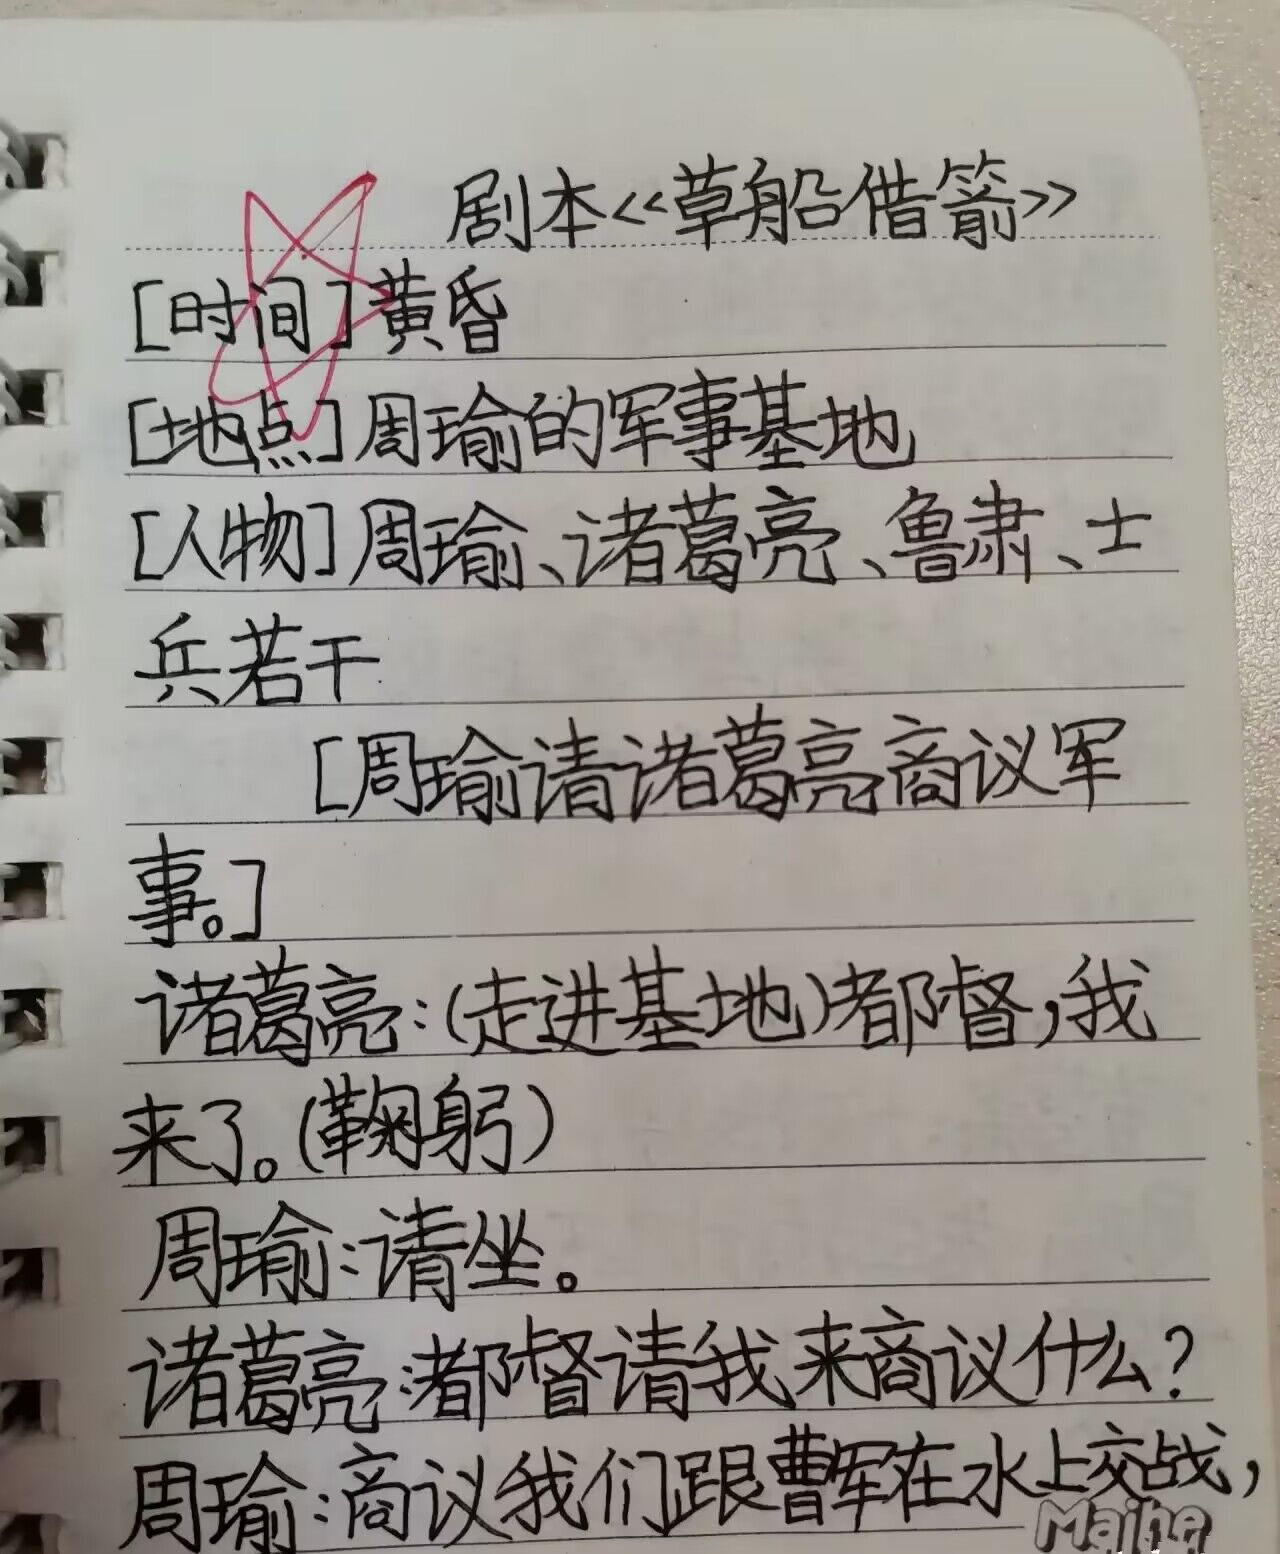 剧本《草船借箭》
[时间]黄昏
[地点]周瑜的军事基地
[人物]周瑜、诸葛亮、鲁肃、士
兵若干
[周瑜请诸葛亮商议军
事。]
诸葛亮:(走进基地)都督,我
来了。(鞠躬)
周瑜:请坐。
诸葛亮:都督请我来商议什么?
周瑜:商议我们跟曹军在水上交战,